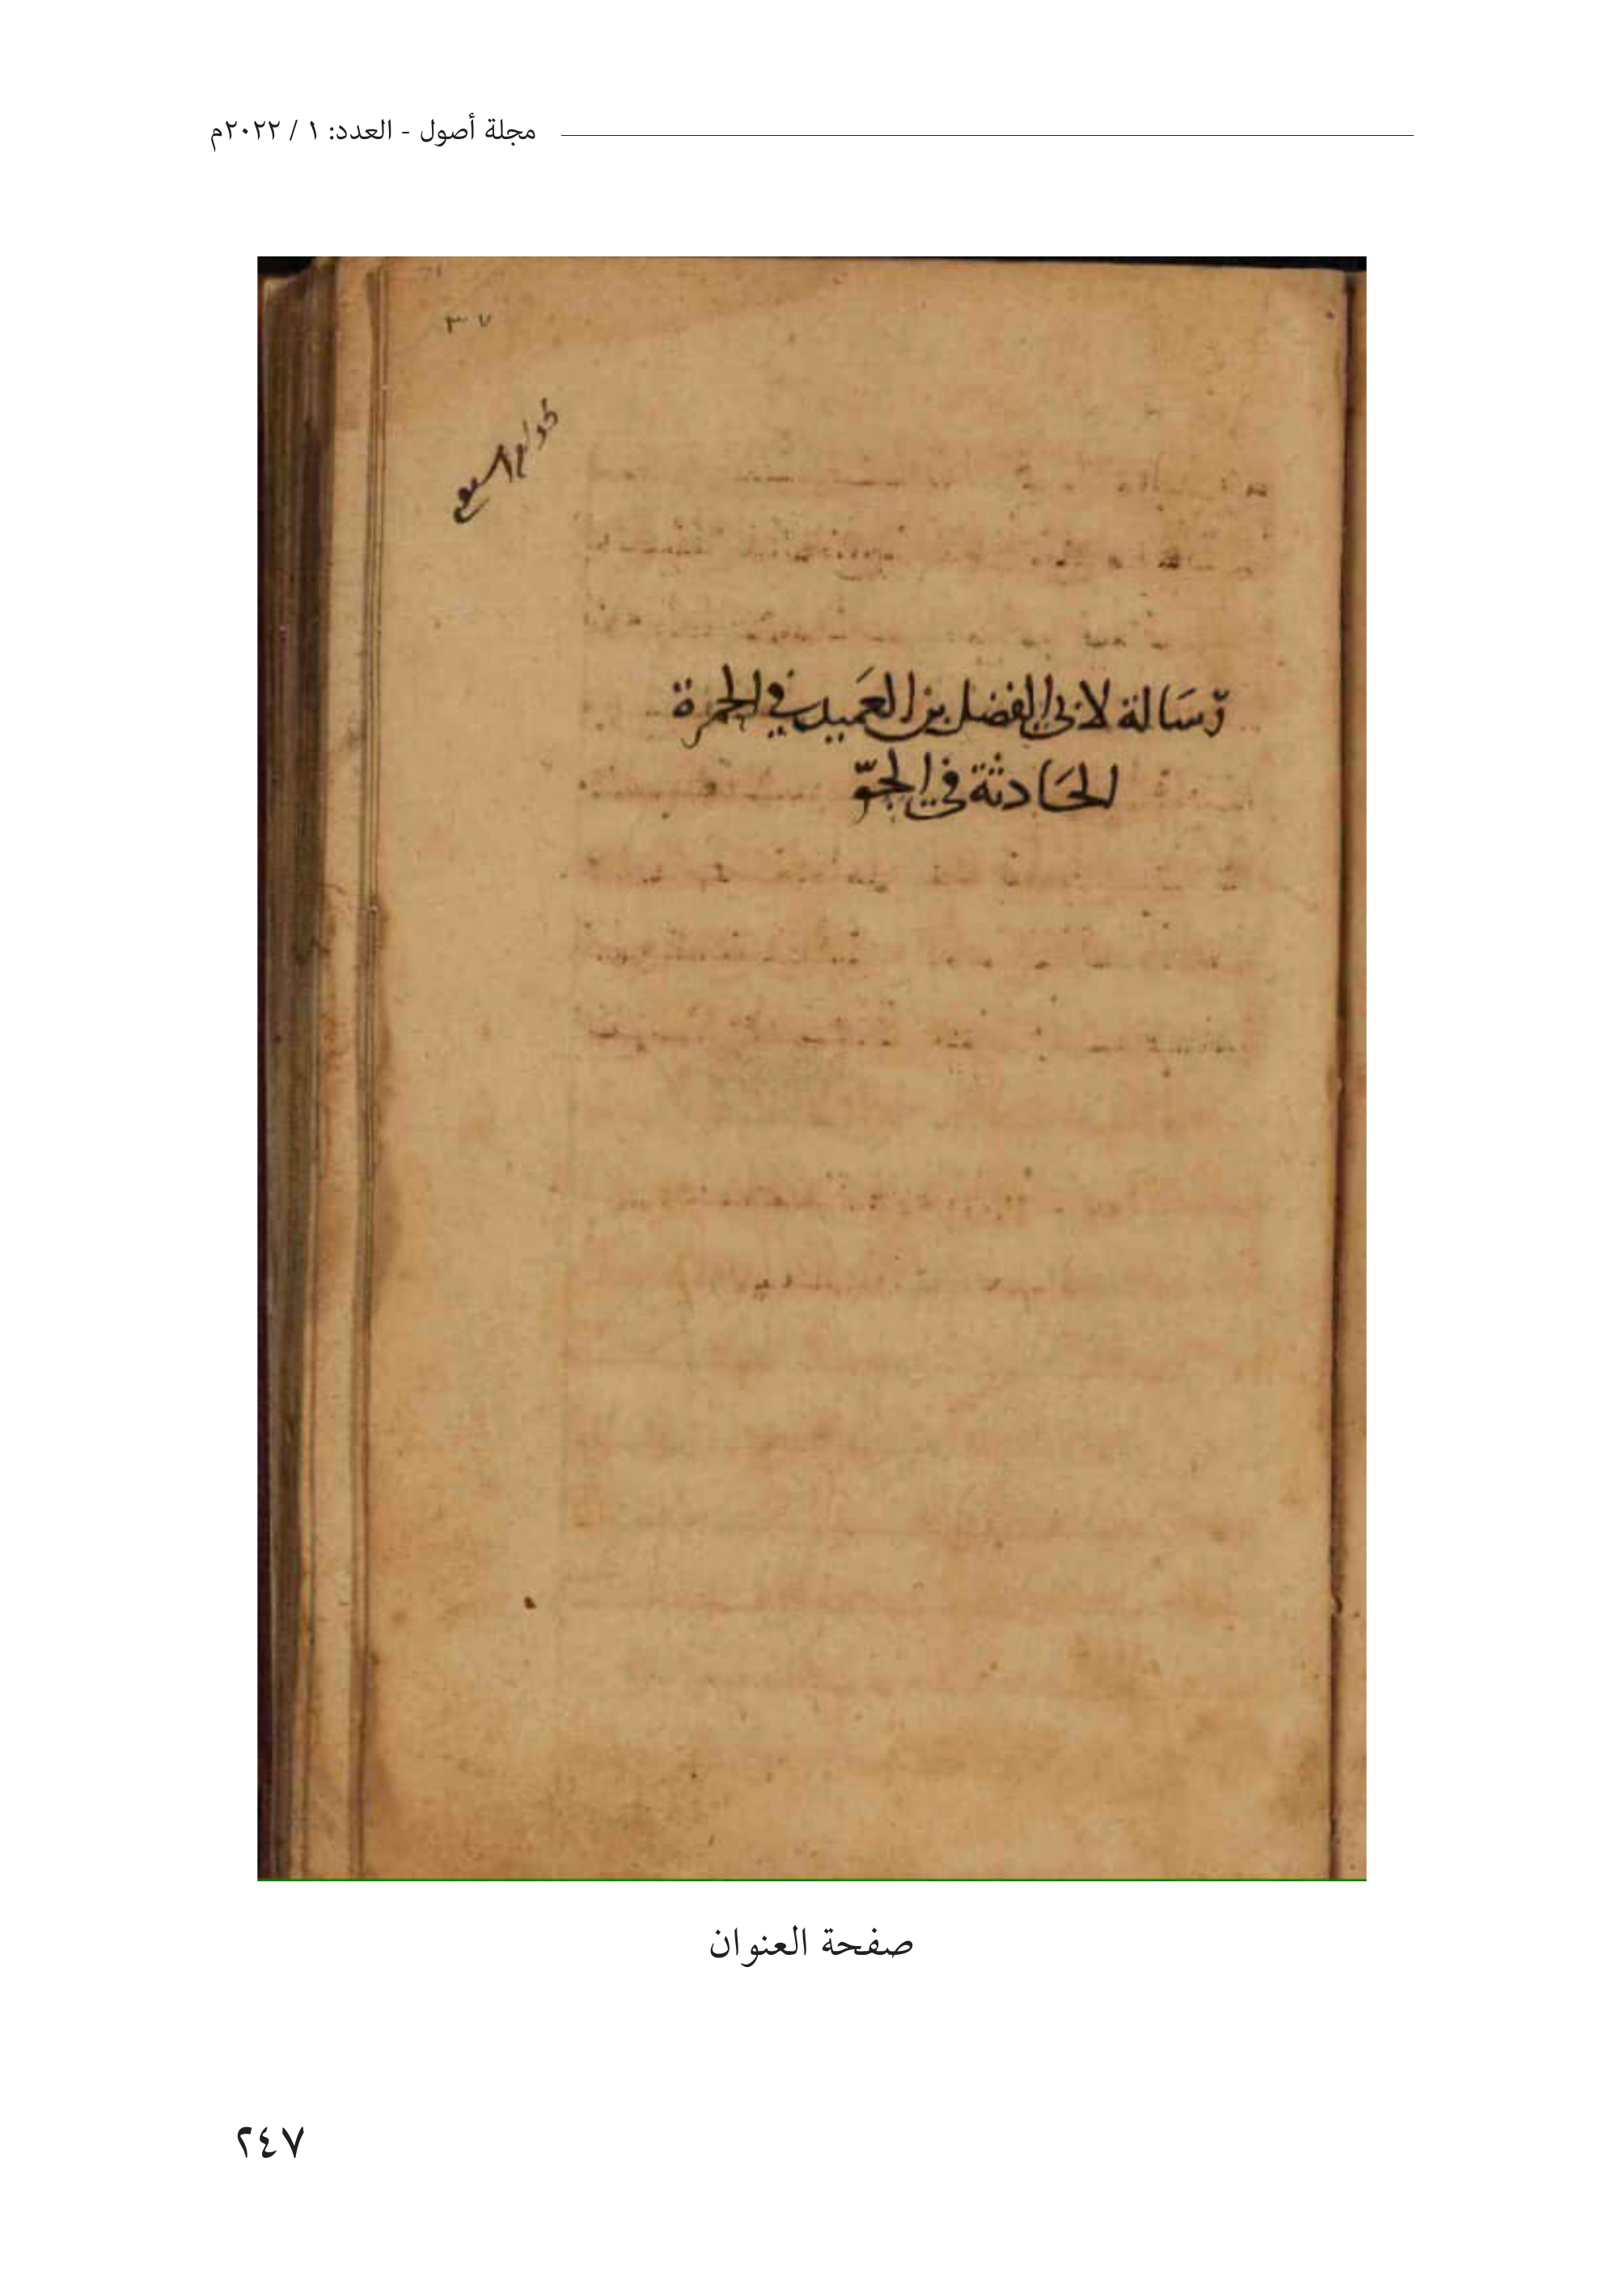 مجلة أصول - العدد: ١ / ٢٠٢٢م
٣٧
رسَالة لابي الفضل بن العَميد في الحمرة
الحَادثة في الجوّ
صفحة العنوان
٢٤٧